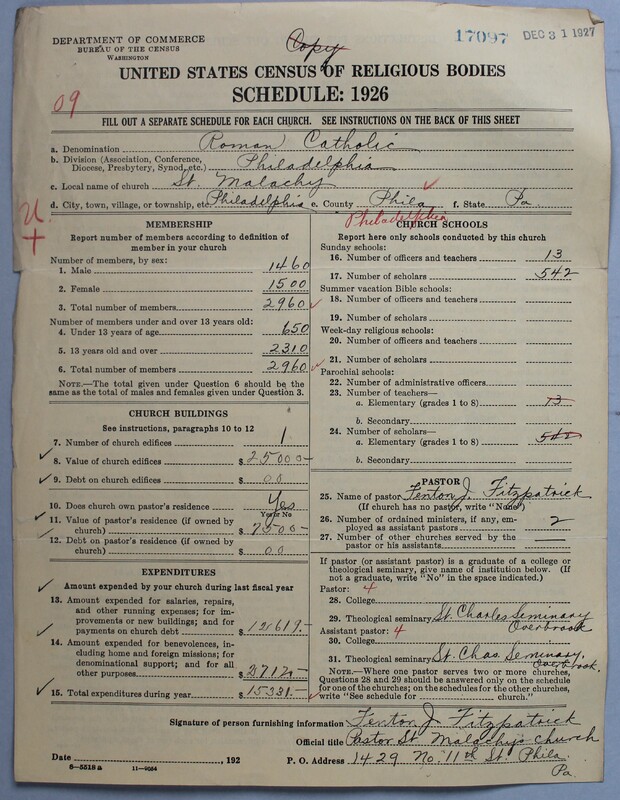 DEPARTMENT OF COMMERCE
BUREAU OF THE CENSUS
WASHINGTON
Copy
17097 DEC 31 1927
UNITED STATES CENSUS OF RELIGIOUS BODIES
SCHEDULE: 1926
09
FILL OUT A SEPARATE SCHEDULE FOR EACH CHURCH. SEE INSTRUCTIONS ON THE BACK OF THIS SHEET
a. Denomination Roman Catholic
b. Division (Association, Conference, Diocese, Presbytery, Synod, etc.) Philadelphia
c. Local name of church St. Malachy
d. City, town, village, or township, etc. Philadelphia e. County Phila f. State Pa.
Philadelphia
U
MEMBERSHIP
Report number of members according to definition of
member in your church
Number of members, by sex:
1. Male 1460
2. Female 1500
3. Total number of members 2960
Number of members under and over 13 years old:
4. Under 13 years of age 650
5. 13 years old and over 2310
6. Total number of members 2960
NOTE.—The total given under Question 6 should be the
same as the total of males and females given under Question 3.
CHURCH BUILDINGS
See instructions, paragraphs 10 to 12
7. Number of church edifices 1
8. Value of church edifices $ 25000-
9. Debt on church edifices $ 00
10. Does church own pastor's residence Yes
Yes or No
11. Value of pastor's residence (if owned by
church) $ 7500-
12. Debt on pastor's residence (if owned by
church) $ 00
EXPENDITURES
Amount expended by your church during last fiscal year
13. Amount expended for salaries, repairs,
and other running expenses; for im-
provements or new buildings; and for
payments on church debt $ 12619.-
14. Amount expended for benevolences, in-
cluding home and foreign missions; for
denominational support; and for all
other purposes $ 2712.-
15. Total expenditures during year $ 15331.-
CHURCH SCHOOLS
Report here only schools conducted by this church
Sunday schools:
16. Number of officers and teachers 13
17. Number of scholars 542
Summer vacation Bible schools:
18. Number of officers and teachers
19. Number of scholars
Week-day religious schools:
20. Number of officers and teachers
21. Number of scholars
Parochial schools:
22. Number of administrative officers
23. Number of teachers—
a. Elementary (grades 1 to 8) 13
b. Secondary
24. Number of scholars—
a. Elementary (grades 1 to 8) 542
b. Secondary
PASTOR
25. Name of pastor Fenton J. Fitzpatrick
(If church has no pastor, write "None")
26. Number of ordained ministers, if any, em-
ployed as assistant pastors 2
27. Number of other churches served by the
pastor or his assistants —
If pastor (or assistant pastor) is a graduate of a college or
theological seminary, give name of institution below. (If
not a graduate, write "No" in the space indicated.)
Pastor: 4
28. College
29. Theological seminary St. Charles Seminary
Overbrook
Assistant pastor: 4
30. College
31. Theological seminary St. Chas. Seminary,
Overbrook.
NOTE.—Where one pastor serves two or more churches,
Questions 28 and 29 should be answered only on the schedule
for one of the churches; on the schedules for the other churches,
write "See schedule for church."
Signature of person furnishing information Fenton J. Fitzpatrick
Official title Pastor St Malachy's Church
Date , 192 P. O. Address 1429 No. 11th St. Phila.
Pa.
8—5518 a 11—9054